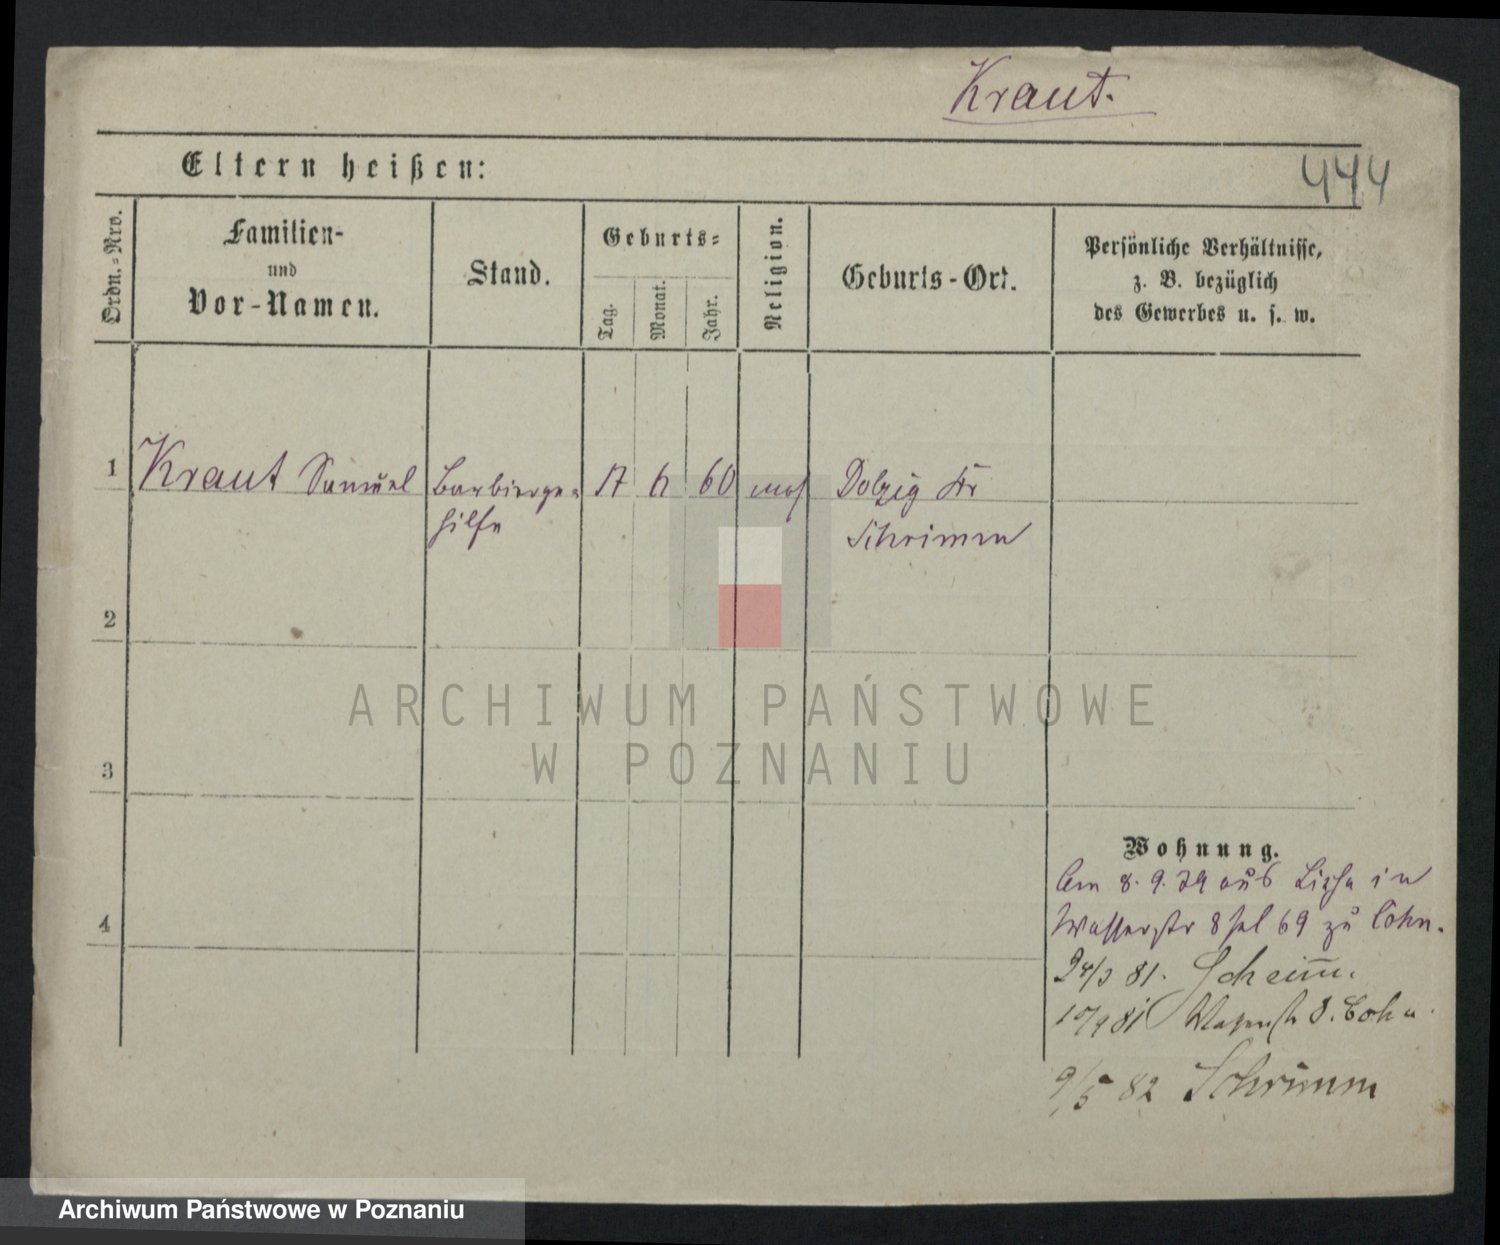 Kraut.
Eltern heißen:
444
Ordn.=Nro.
Familien-
und
Vor-Namen.
Stand.
Geburts=
Tag.
Monat.
Jahr.
Religion.
Geburts-Ort.
Persönliche Verhältnisse,
z. B. bezüglich
des Gewerbes u. s. w.
1 Kraut Samuel Barbierge= 17 6 60 mos Dolzig Kr
hilfe Schrimm
2
3
4
ARCHIWUM PAŃSTWOWE
W POZNANIU
Wohnung.
Am 8. 9. 79 aus Lissa in
Wasserstr 8 bei 69 zu Cohn.
24/3 81. Schrimm.
10/9 81 Wasserstr 8. Cohn.
9/5 82 Schrimm
Archiwum Państwowe w Poznaniu